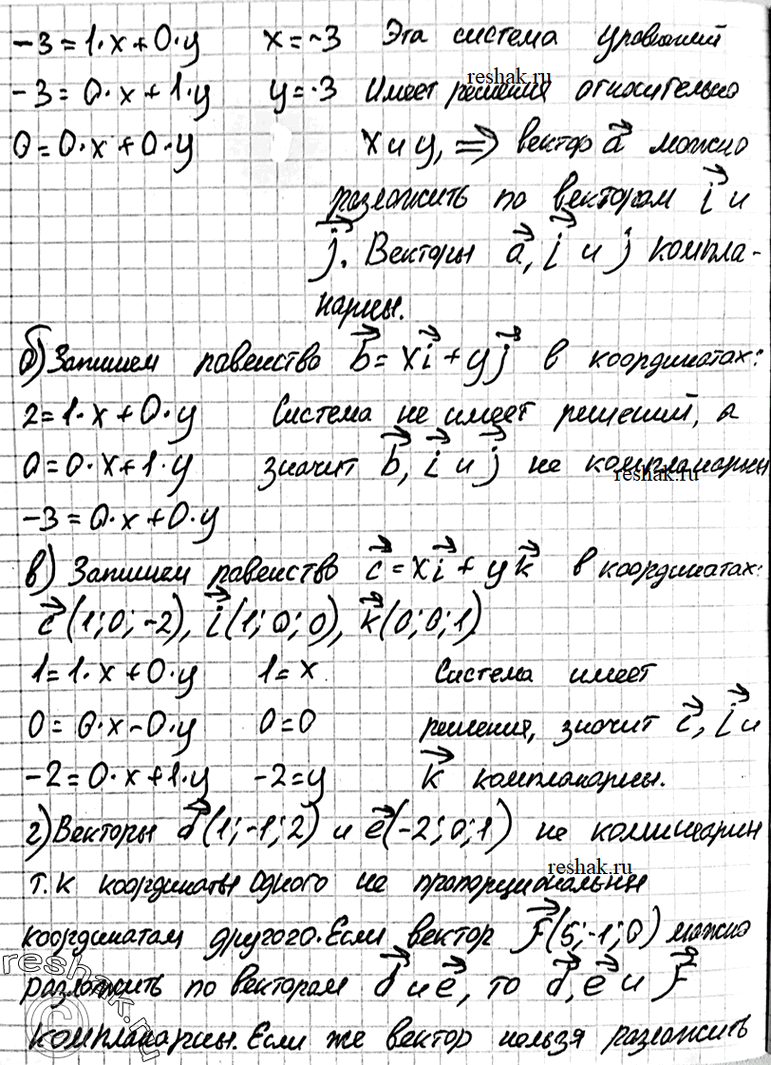 -3=1·x+0·y x=-3 Эта система уравнений
reshak.ru
-3=0·x+1·y y=-3 Имеет решения относительно
0=0·x+0·y x и y, ⇒ вектор a⃗ можно
разложить по векторам i⃗ и
j⃗. Векторы a⃗, i⃗ и j⃗ компла-
нарны.
б) Запишем равенство b⃗=xi⃗+yj⃗ в координатах:
2=1·x+0·y Система не имеет решений, а
0=0·x+1·y значит b⃗, i⃗ и j⃗ не компланарны
reshak.ru
-3=0·x+0·y
в) Запишем равенство c⃗=xi⃗+yk⃗ в координатах:
c⃗(1;0;-2), i⃗(1;0;0), k⃗(0;0;1)
1=1·x+0·y 1=x Система имеет
0=0·x-0·y 0=0 решения, значит c⃗, i⃗ и
-2=0·x+1·y -2=y k⃗ компланарны.
г) Векторы d⃗(1;-1;2) и e⃗(-2;0;1) не коллинеарн
reshak.ru
т.к координаты одного не пропорциональны
координатам другого. Если вектор f⃗(5;-1;0) можно
разложить по векторам d⃗ и e⃗, то d⃗, e⃗ и f⃗
компланарны. Если же вектор нельзя разложить
© reshak.ru